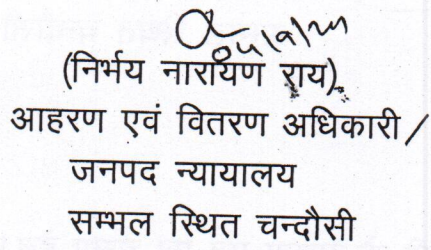 (निर्भय नारायण राय)
आहरण एवं वितरण अधिकारी/
जनपद न्यायालय
सम्भल स्थित चन्दौसी